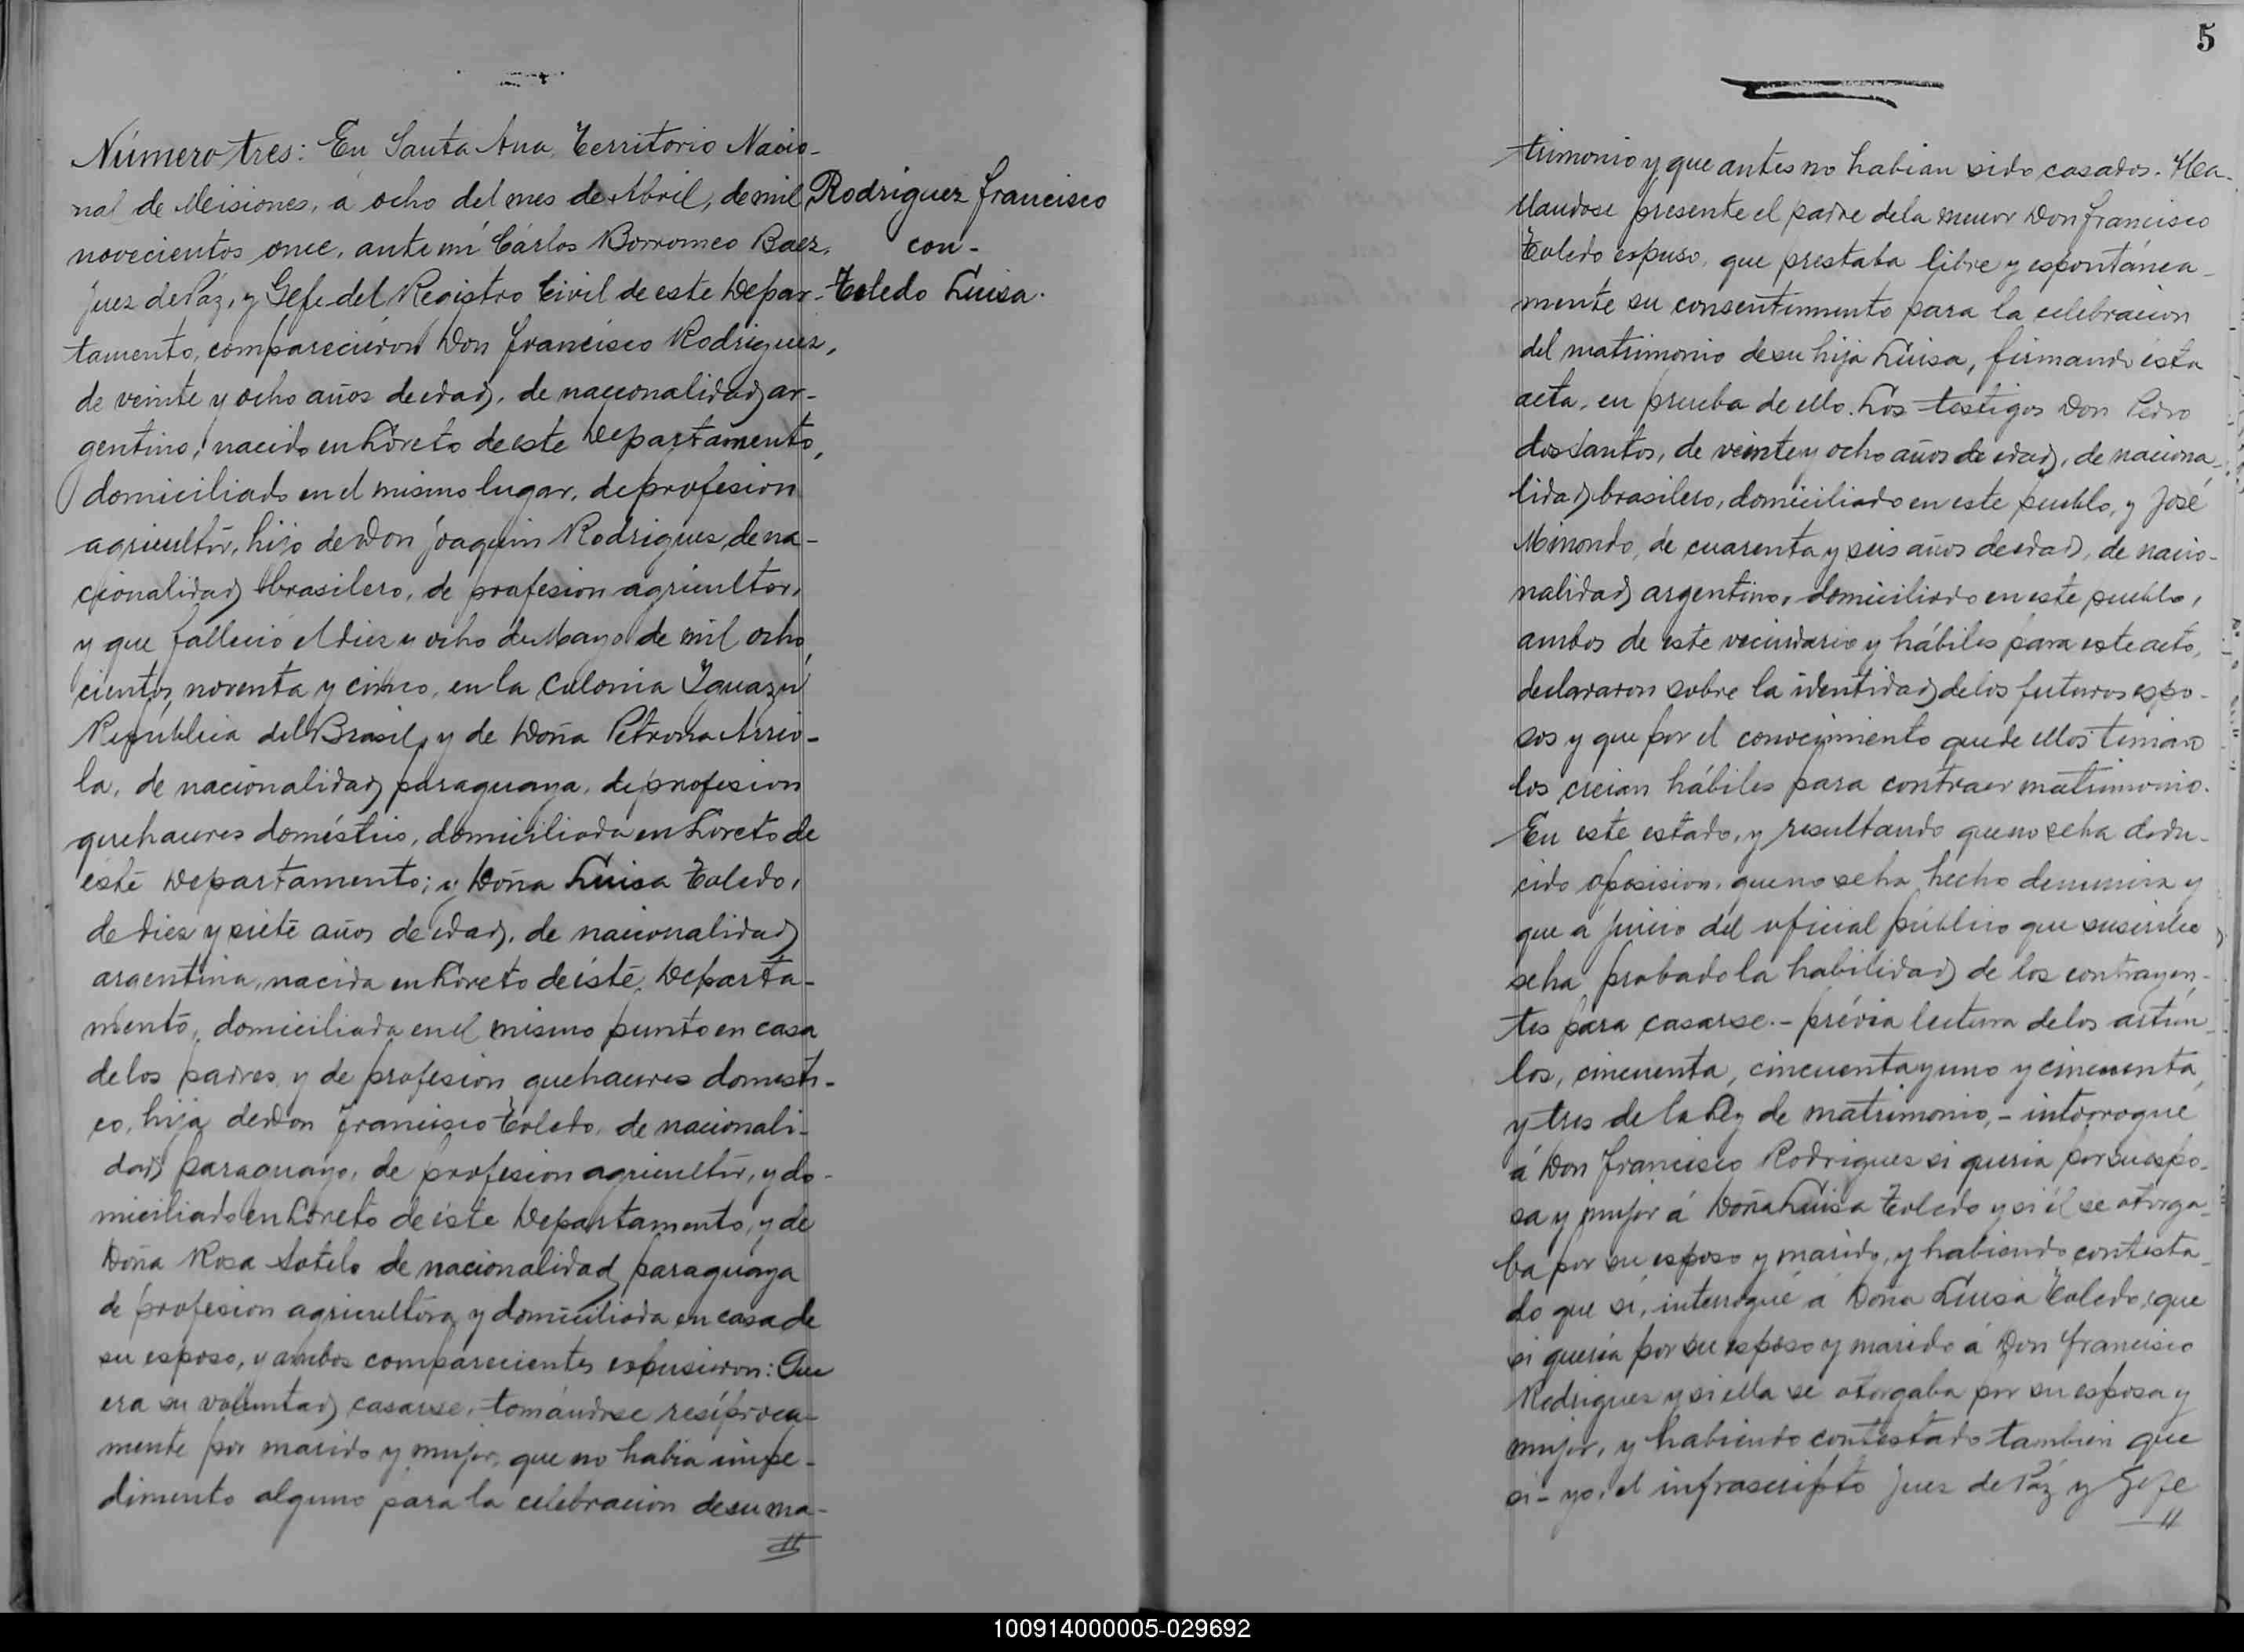 Número tres: En Santa Ana, Territorio Nacio-
nal de Misiones, a ocho del mes de Abril, de mil
novecientos once, ante mí Cárlos Borromeo Baez,
Juez de Páz, y Gefe del Registro Civil de este Depar-
tamento, comparecieron Don Francisco Rodriguez,
de veinte y ocho años de edad, de nacionalidad ar-
gentino, nacido en Loreto de este Departamento,
domiciliado en el mismo lugar, de profesion
agricultor, hijo de Don Joaquin Rodrigues, de na-
cionalidad brasilero, de profesion agricultor,
y que falleció el diez y ocho de Mayo de mil ocho
cientos, noventa y cinco, en la Colonia Yguazú
República del Brasil, y de Doña Petrona Arrio-
la, de nacionalidad paraguaya, de profesion
quehaceres doméstico, domiciliada en Loreto de
éste Departamento; y Doña Luisa Toledo,
de diez y siete años de edad, de nacionalidad
argentina, nacida en Loreto de éste Departa-
mento, domiciliada en el mismo punto en casa
de los padres y de profesion quehaceres domesti-
co, hija de Don Francisco Toledo, de nacionali-
dad paraguayo, de profesion agricultor, y do-
miciliado en Loreto de éste Departamento, y de
Doña Rosa Sotelo de nacionalidad paraguaya
de profesion agricultora y domiciliada en casa de
su esposo, y ambos comparecientes espusieron: Que
era su voluntad casarse, tomándose resíproca-
mente por marido y mujer, que no habia impe-
dimento alguno para la celebracion de su ma-
Rodriguez Francisco
con-
Toledo Luisa.
5
trimonio y que antes no habian sido casados. Ha-
llandose presente el padre de la menor Don Francisco
Toledo espuso, que prestaba libre y espontánea-
mente su consentimiento para la celebracion
del matrimonio de su hija Luisa, firmando ésta
acta, en prueba de ello. Los testigos Don Pedro
dos Santos, de veinte y ocho años de edad, de naciona-
lidad brasilero, domiciliado en este pueblo, y José
Minondo, de cuarenta y seis años de edad, de nacio-
nalidad argentino, domiciliado en este pueblo,
ambos de este vecindario y hábiles para este acto,
declararon sobre la identidad de los futuros espo-
sos y que por el conocimiento que de ellos tenian
los creian hábiles para contraer matrimonio.
En este estado, y resultando que no se ha dedu-
cido oposision, que no se ha hecho denuncia y
que a juicio del oficial público que suscribe
se ha probado la habilidad de los contrayen-
tes para casarse.- prévia lectura de los artícu-
los, cincuenta, cincuenta y uno y cincuenta
y tres de la Ley de matrimonio,- interrogué
á Don Francisco Rodrigues si queria por su espo-
sa y mujer á Doña Luisa Toledo y si él se otorga-
ba por su esposo y marido, y habiendo contesta-
do que si, interrogué a Doña Luisa Toledo, que
si queria por su esposo y marido á Don Francisco
Rodrigues y si ella se otorgaba por su esposa y
mujer, y habiendo contestado tambien que
si- yo, el infrascripto Juez de Páz y Gefe
100914000005-029692